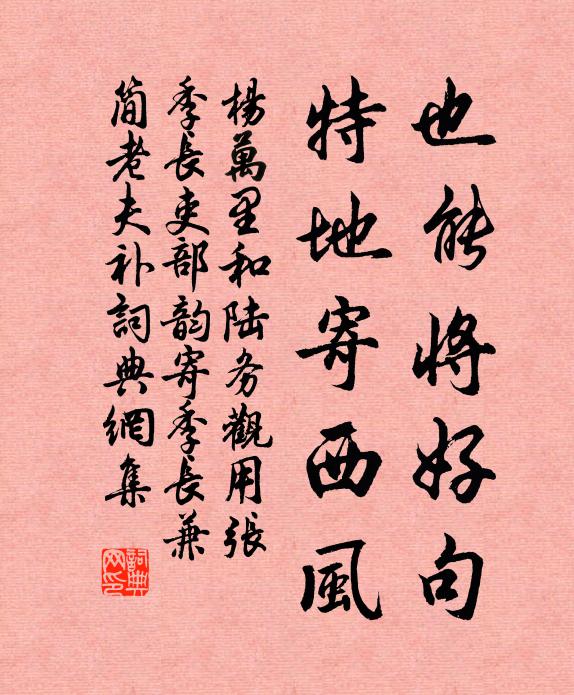 也能将好句
特地寄西風
楊萬里和陆务觀用張
季長吏部韵寄季長兼
简老夫补詞典網集
詞典網印